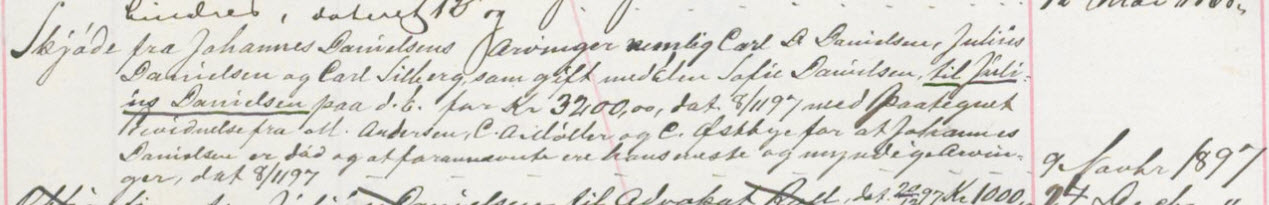 hindres, dateret 15 og
Skjøde fra Johannes Danielsens Arvinger nemlig Carl A Danielsen, Julius
Danielsen og Carl Silberg, som gift med Elen Sofie Danielsen, til Juli-
us Danielsen paa d. E. for Kr 3200,00, dat 8/11 97 med Paategnet
Bevidnelse fra M. Andersen, C. A. Møller og C. Østbye for at Johannes
Danielsen er død og at forannævnte ere hans eneste og myndige Arvin-
ger, dat 8/11 97 9 Novbr 1897
til Advokat dat. 97 Kr 1000,